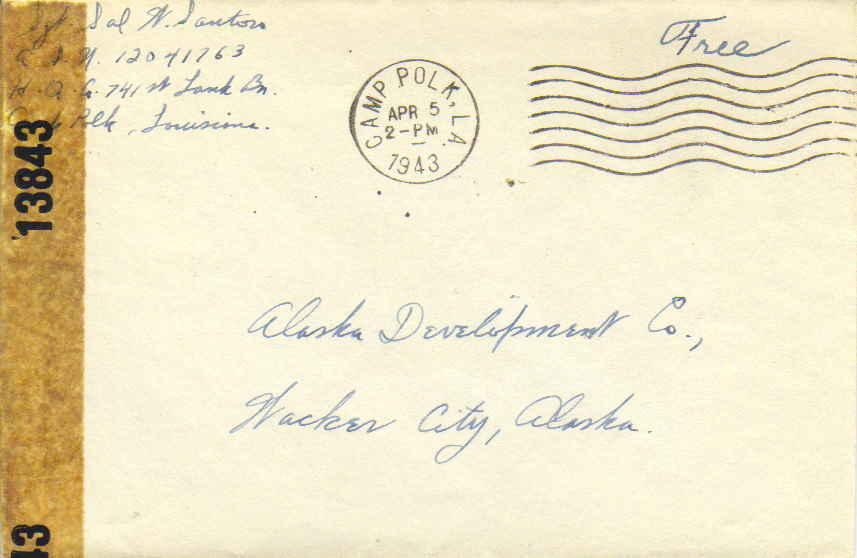 Sgt. Sal W. Santoro
A. S. N. 12041763
H. Q. Co. 741st Tank Bn.
Polk, Louisiana.
Free
CAMP POLK, LA.
APR 5
2-PM
1943
13843
43
Alaska Development Co.,
Wacker City, Alaska.